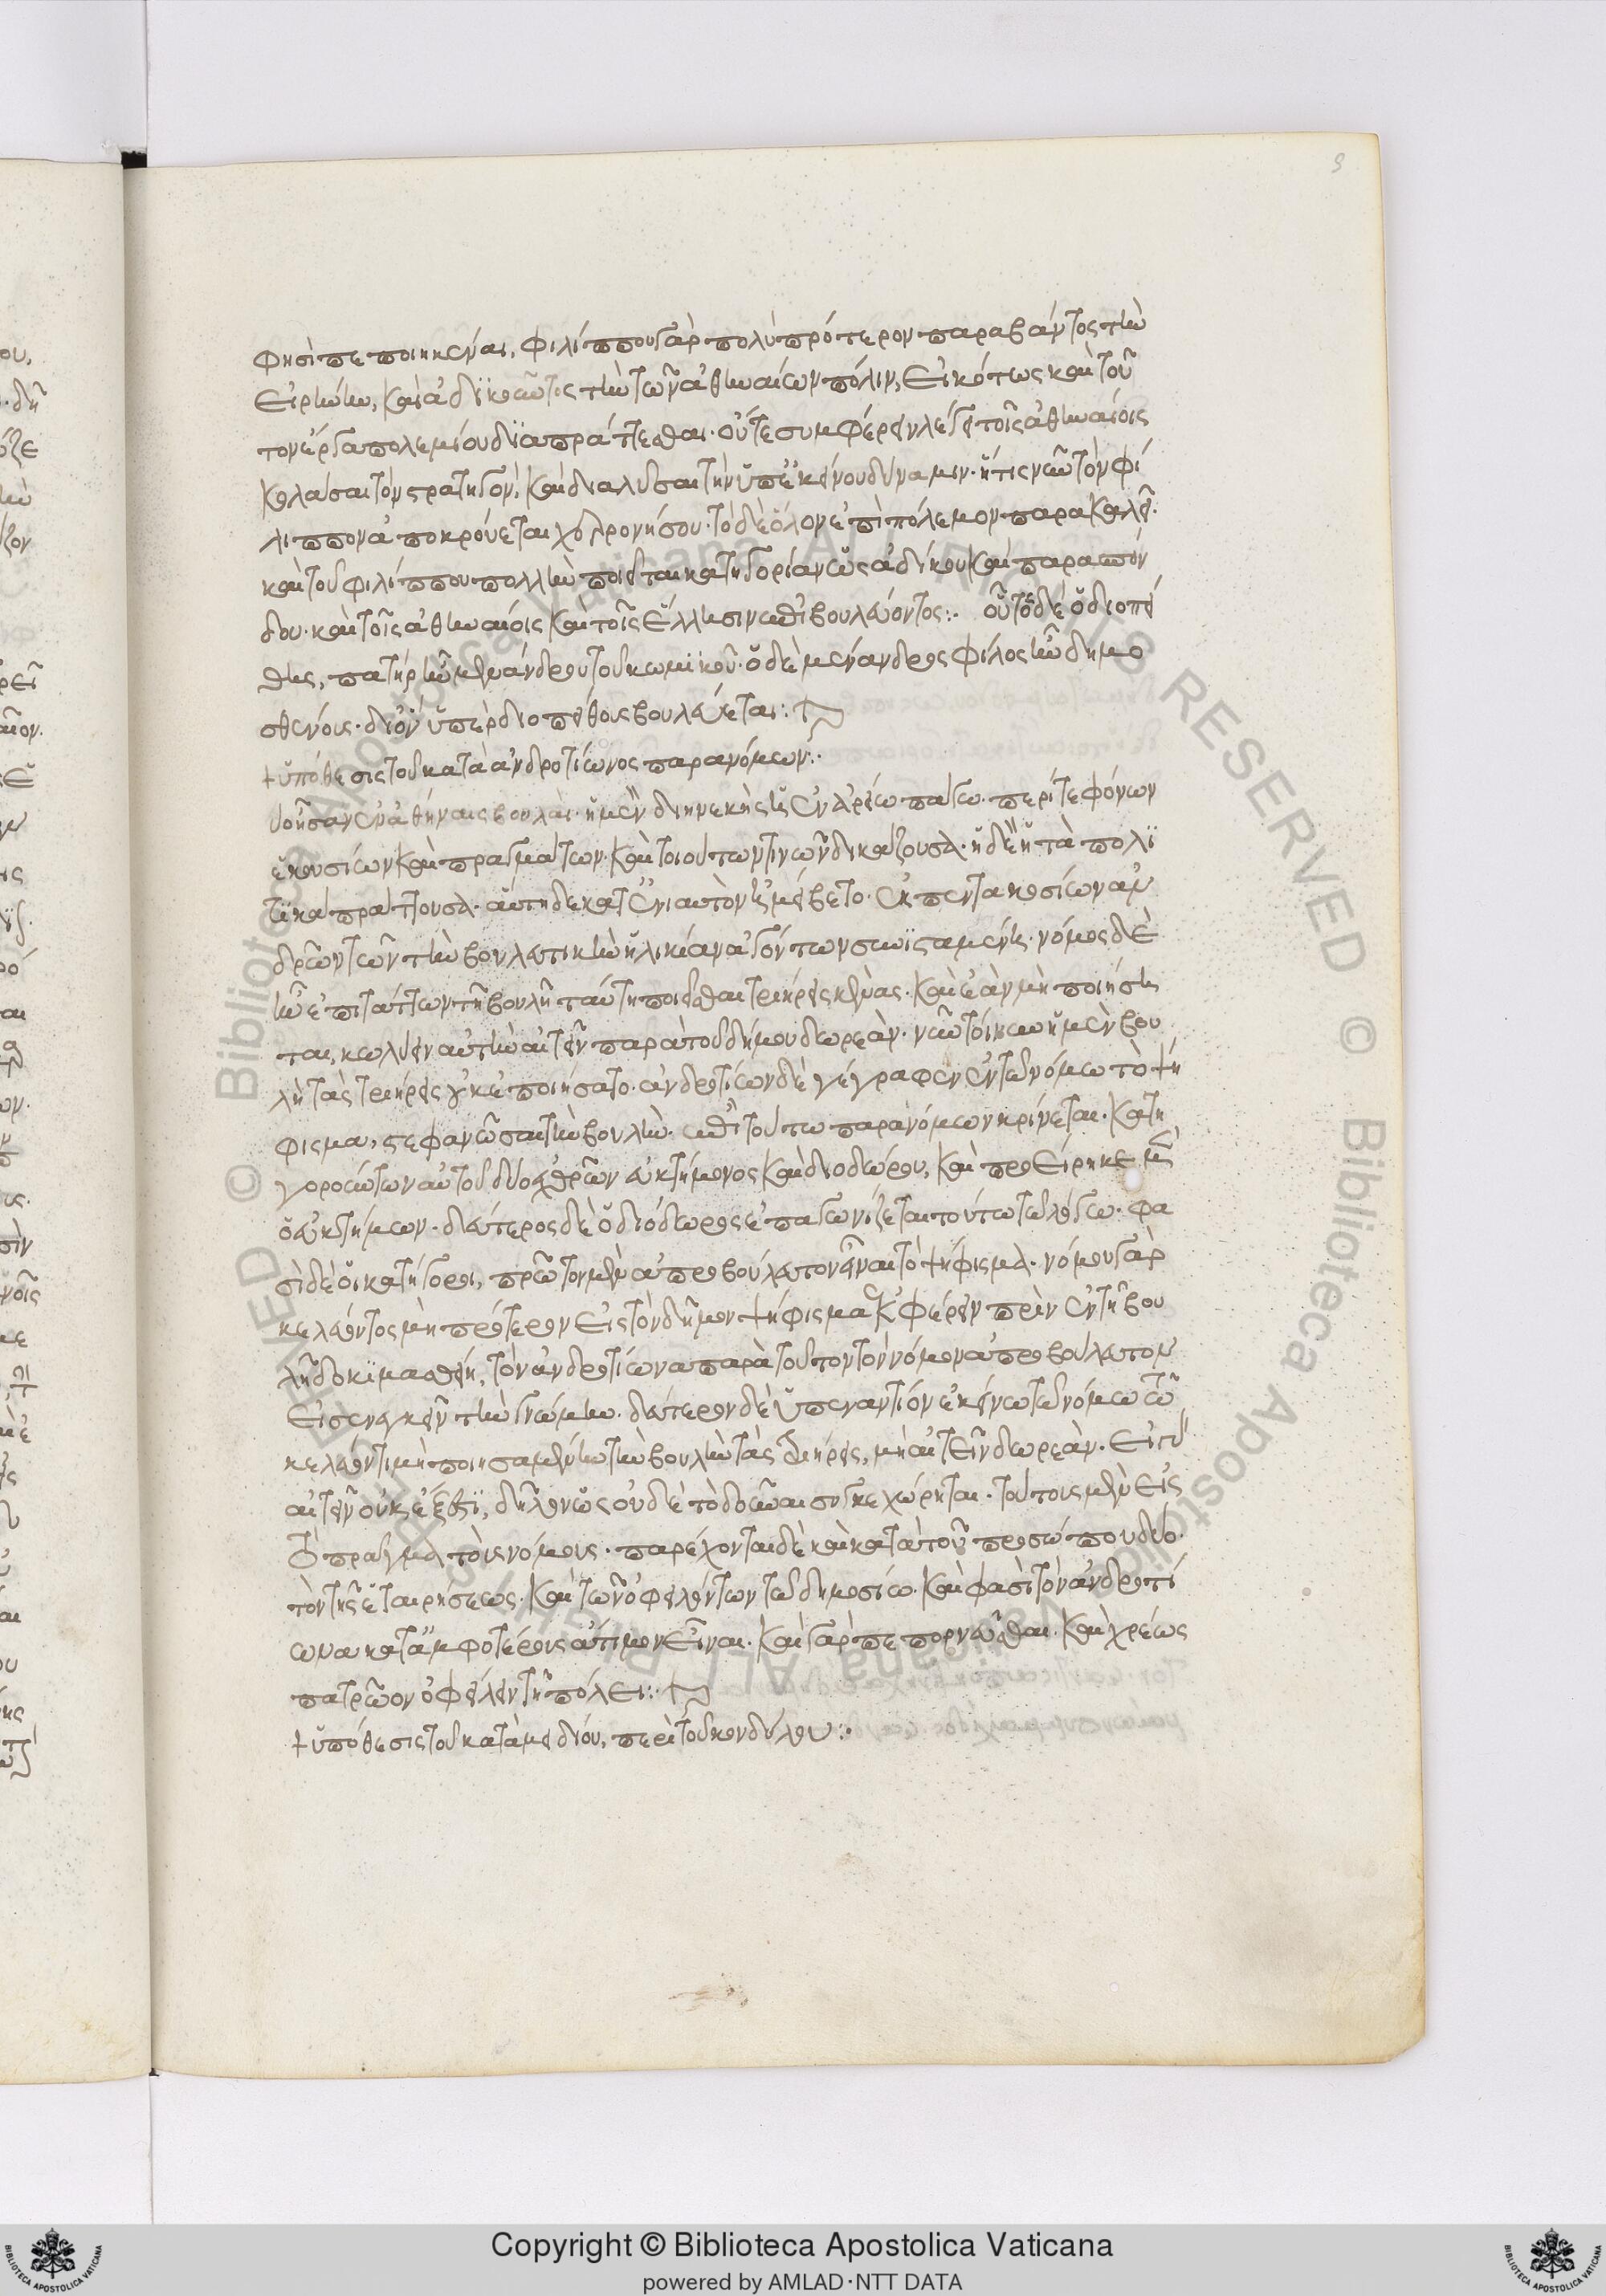 φησὶ πεποιηκέναι, φιλίππου γὰρ πολὺ πρότερον παραβάντος τὴν
εἰρήνην, καὶ ἀδικοῦντος τὴν τῶν ἀθηναίων πόλιν, εἰκότως καὶ τοῦ
τον ἔργα πολεμίου διαπράττεσθαι. οὔτε συμφέρειν λέγει τοῖς ἀθηναίοις
κολάσαι τὸν στρατηγὸν, καὶ διαλῦσαι τὴν ὑπ' ἐκείνου δύναμιν. ἥτις νῦν τὸν φί
λιππον ἀποκρούεται χερρονήσου. τὸ δὲ ὅλον ἐπὶ πόλεμον παρακαλεῖ.
καὶ τοῦ φιλίππου πολλὴν ποιεῖται κατηγορίαν ὡς ἀδίκου καὶ παρασπόν
δου. καὶ τοῖς ἀθηναίοις καὶ τοῖς ἕλλησιν ἐπιβουλεύοντος:. οὗτος δὲ ὁ διοπεί
θης, πατὴρ ἦν μενάνδρου τοῦ κωμικοῦ. ὁ δὲ μένανδρος φίλος ἦν δημο
σθένους. δι' ὃν ὑπὲρ διοπείθους βουλεύεται:
+ ὑπόθεσις τοῦ κατὰ ἀνδροτίωνος παρανόμων:.
ἦσαν ἐν ἀθήναις βουλαὶ. ἡ μὲν διηνεκὴς ἡ ἐν ἀρείω πάγω. περί τε φόνων
ἑκουσίων καὶ πραγμάτων. καὶ τοιούτων τινῶν δικάζουσα. ἡ δὲ ἡ τὰ πολι
τικὰ πράττουσα. αὕτη δὲ κατ' ἐνιαυτὸν ἠμείβετο. ἐκ πεντακοσίων ἀν
δρῶν τῶν τὴν βουλευτικὴν ἡλικίαν ἀγόντων συνισταμένη. νόμος δὲ
ἦν ἐπιτάττων τῇ βουλῇ ταύτῃ ποιεῖσθαι τριήρεις καινὰς. καὶ ἐὰν μὴ ποιήση
ται, κωλύειν αὐτὴν αἰτεῖν παρὰ τοῦ δήμου δωρεάν. νῦν τοίνυν ἡ μὲν βου
λὴ τὰς τριήρεις οὐκ ἐποιήσατο. ἀνδροτίων δὲ γέγραφεν ἐν τῷ νόμω τὸ ψή
φισμα, στεφανῶσαι τὴν βουλήν. ἐπὶ τούτω παρανόμων κρίνεται. κατη
γορούντων αὐτοῦ δύο ἐχθρῶν εὐκτήμονος καὶ διοδώρου, καὶ προείρηκε μὲν
ὁ εὐκτήμων. δεύτερος δὲ ὁ διόδωρος ἐπαγωνίζεται τούτω τῷ λόγω. φα
σὶ δὲ οἱ κατήγοροι, πρῶτον μὲν ἀπροβούλευτον εἶναι τὸ ψήφισμα. νόμου γὰρ
κελεύοντος μὴ πρότερον εἰς τὸν δῆμον ψήφισμα ἐκφέρειν πρὶν ἐν τῇ βου
λῇ δοκιμασθείη, τὸν ἀνδροτίωνα παρὰ τοῦτον τὸν νόμον ἀπροβούλευτον
εἰσενεγκεῖν τὴν γνώμην. δεύτερον δὲ ὑπεναντίον ἐκείνω τῷ νόμω τῷ
κελεύοντι μὴ ποιησαμένην τὴν βουλὴν τὰς τριήρεις, μὴ αἰτεῖν δωρεὰν. εἰ γὰρ
αἰτεῖν οὐκ ἔξεστι, δῆλον ὡς οὐδὲ τὸ δοῦναι συγκεχώρηται. τούτοις μὲν εἰς
τὸ πρᾶγμα τοῖς νόμοις. παρέχονται δὲ καὶ κατὰ τοῦ προσώπου δύο.
τὸν τῆς ἑταιρήσεως. καὶ τῶν ὀφειλόντων τῷ δημοσίω. καὶ φασὶ τὸν ἀνδροτί
ωνα κατ' ἀμφοτέρους ἄτιμον εἶναι. καὶ γὰρ πεπορνεῦσθαι. καὶ χρέως
πατρῶον ὀφείλειν τῇ πόλει:
+ ὑπόθεσις τοῦ κατὰ μειδίου, περὶ τοῦ κονδύλου:.
9
Copyright © Biblioteca Apostolica Vaticana
powered by AMLAD·NTT DATA